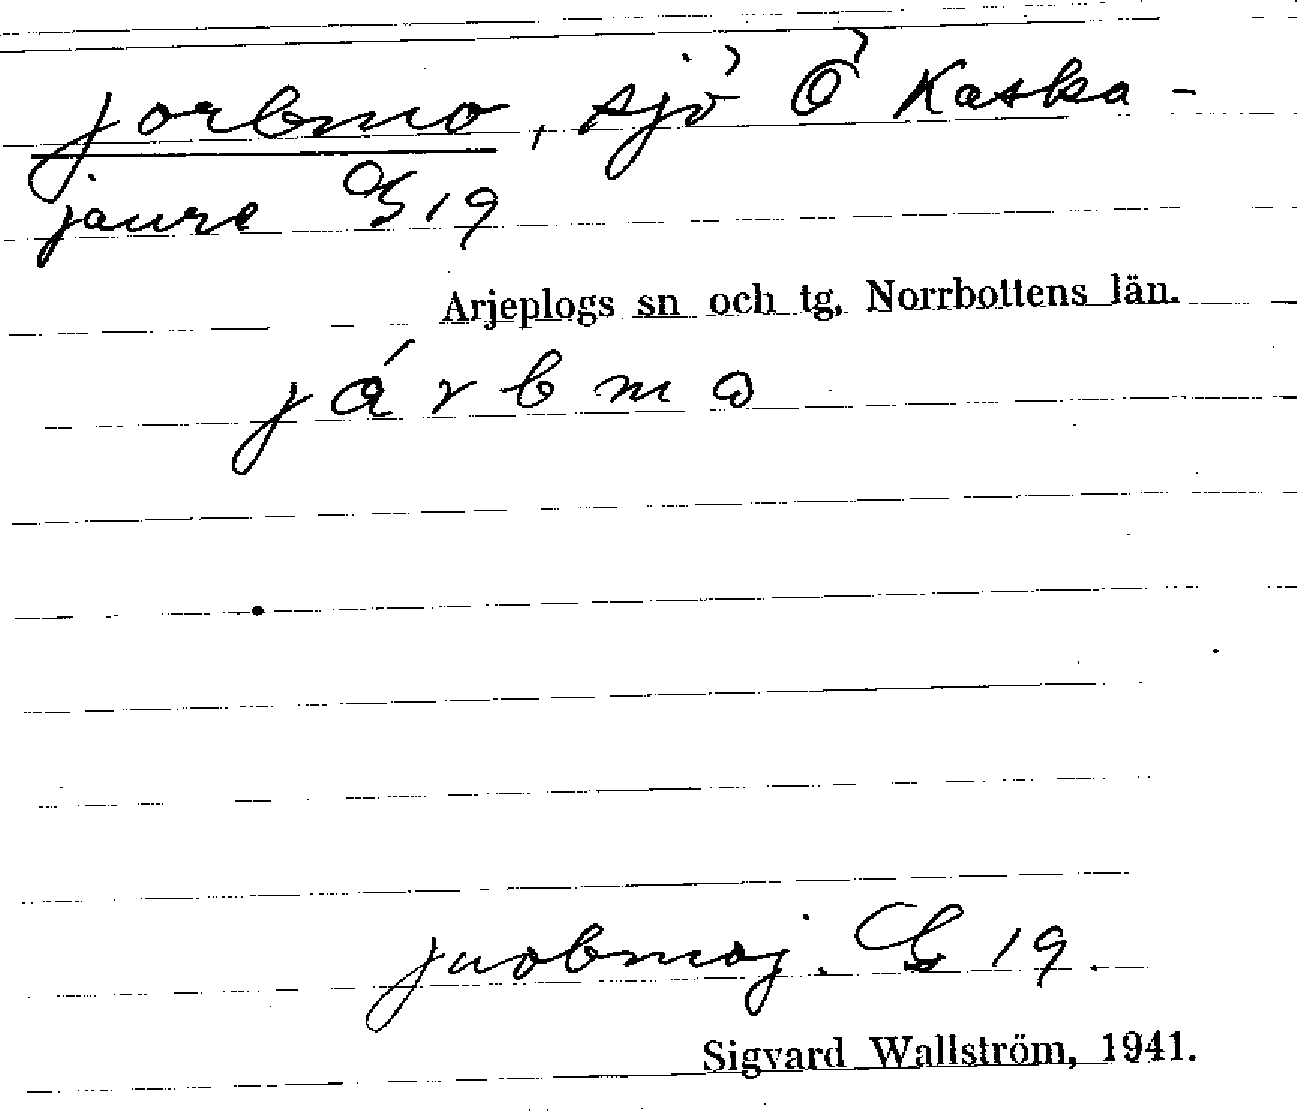 jorbmo, sjö Ö Kaska-
jaure G 19
Arjeplogs sn och tg, Norrbottens län.
járbmo
juobmoj. G 19.
Sigvard Wallström, 1941.